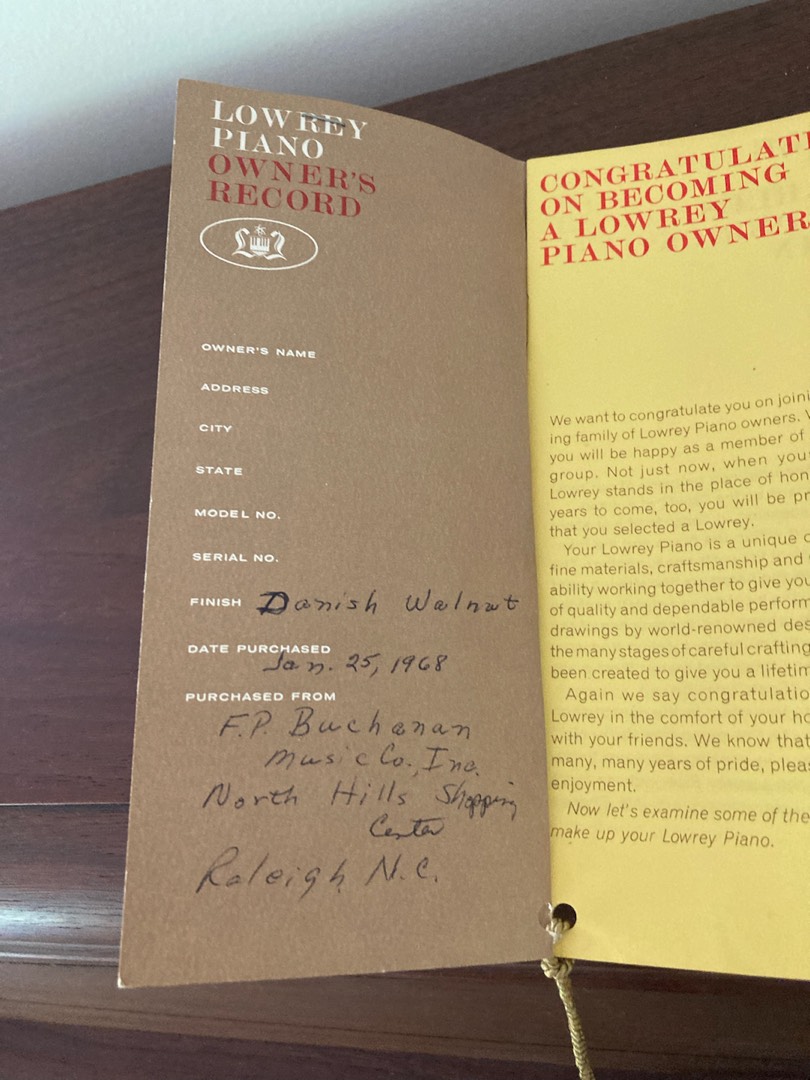 LOWREY
PIANO
OWNER'S
RECORD
OWNER'S NAME
ADDRESS
CITY
STATE
MODEL NO.
SERIAL NO.
FINISH Danish Walnut
DATE PURCHASED
Jan. 25, 1968
PURCHASED FROM
F.P. Buchanan
Music Co., Inc.
North Hills Shopping
Center
Raleigh N.C.
CONGRATULATI
ON BECOMING
A LOWREY
PIANO OWNER
We want to congratulate you on joini
ing family of Lowrey Piano owners. W
you will be happy as a member of
group. Not just now, when you
Lowrey stands in the place of hon
years to come, too, you will be pr
that you selected a Lowrey.
Your Lowrey Piano is a unique c
fine materials, craftsmanship and
ability working together to give you
of quality and dependable perform
drawings by world-renowned des
the many stages of careful crafting
been created to give you a lifetim
Again we say congratulatio
Lowrey in the comfort of your ho
with your friends. We know that
many, many years of pride, pleas
enjoyment.
Now let's examine some of the
make up your Lowrey Piano.